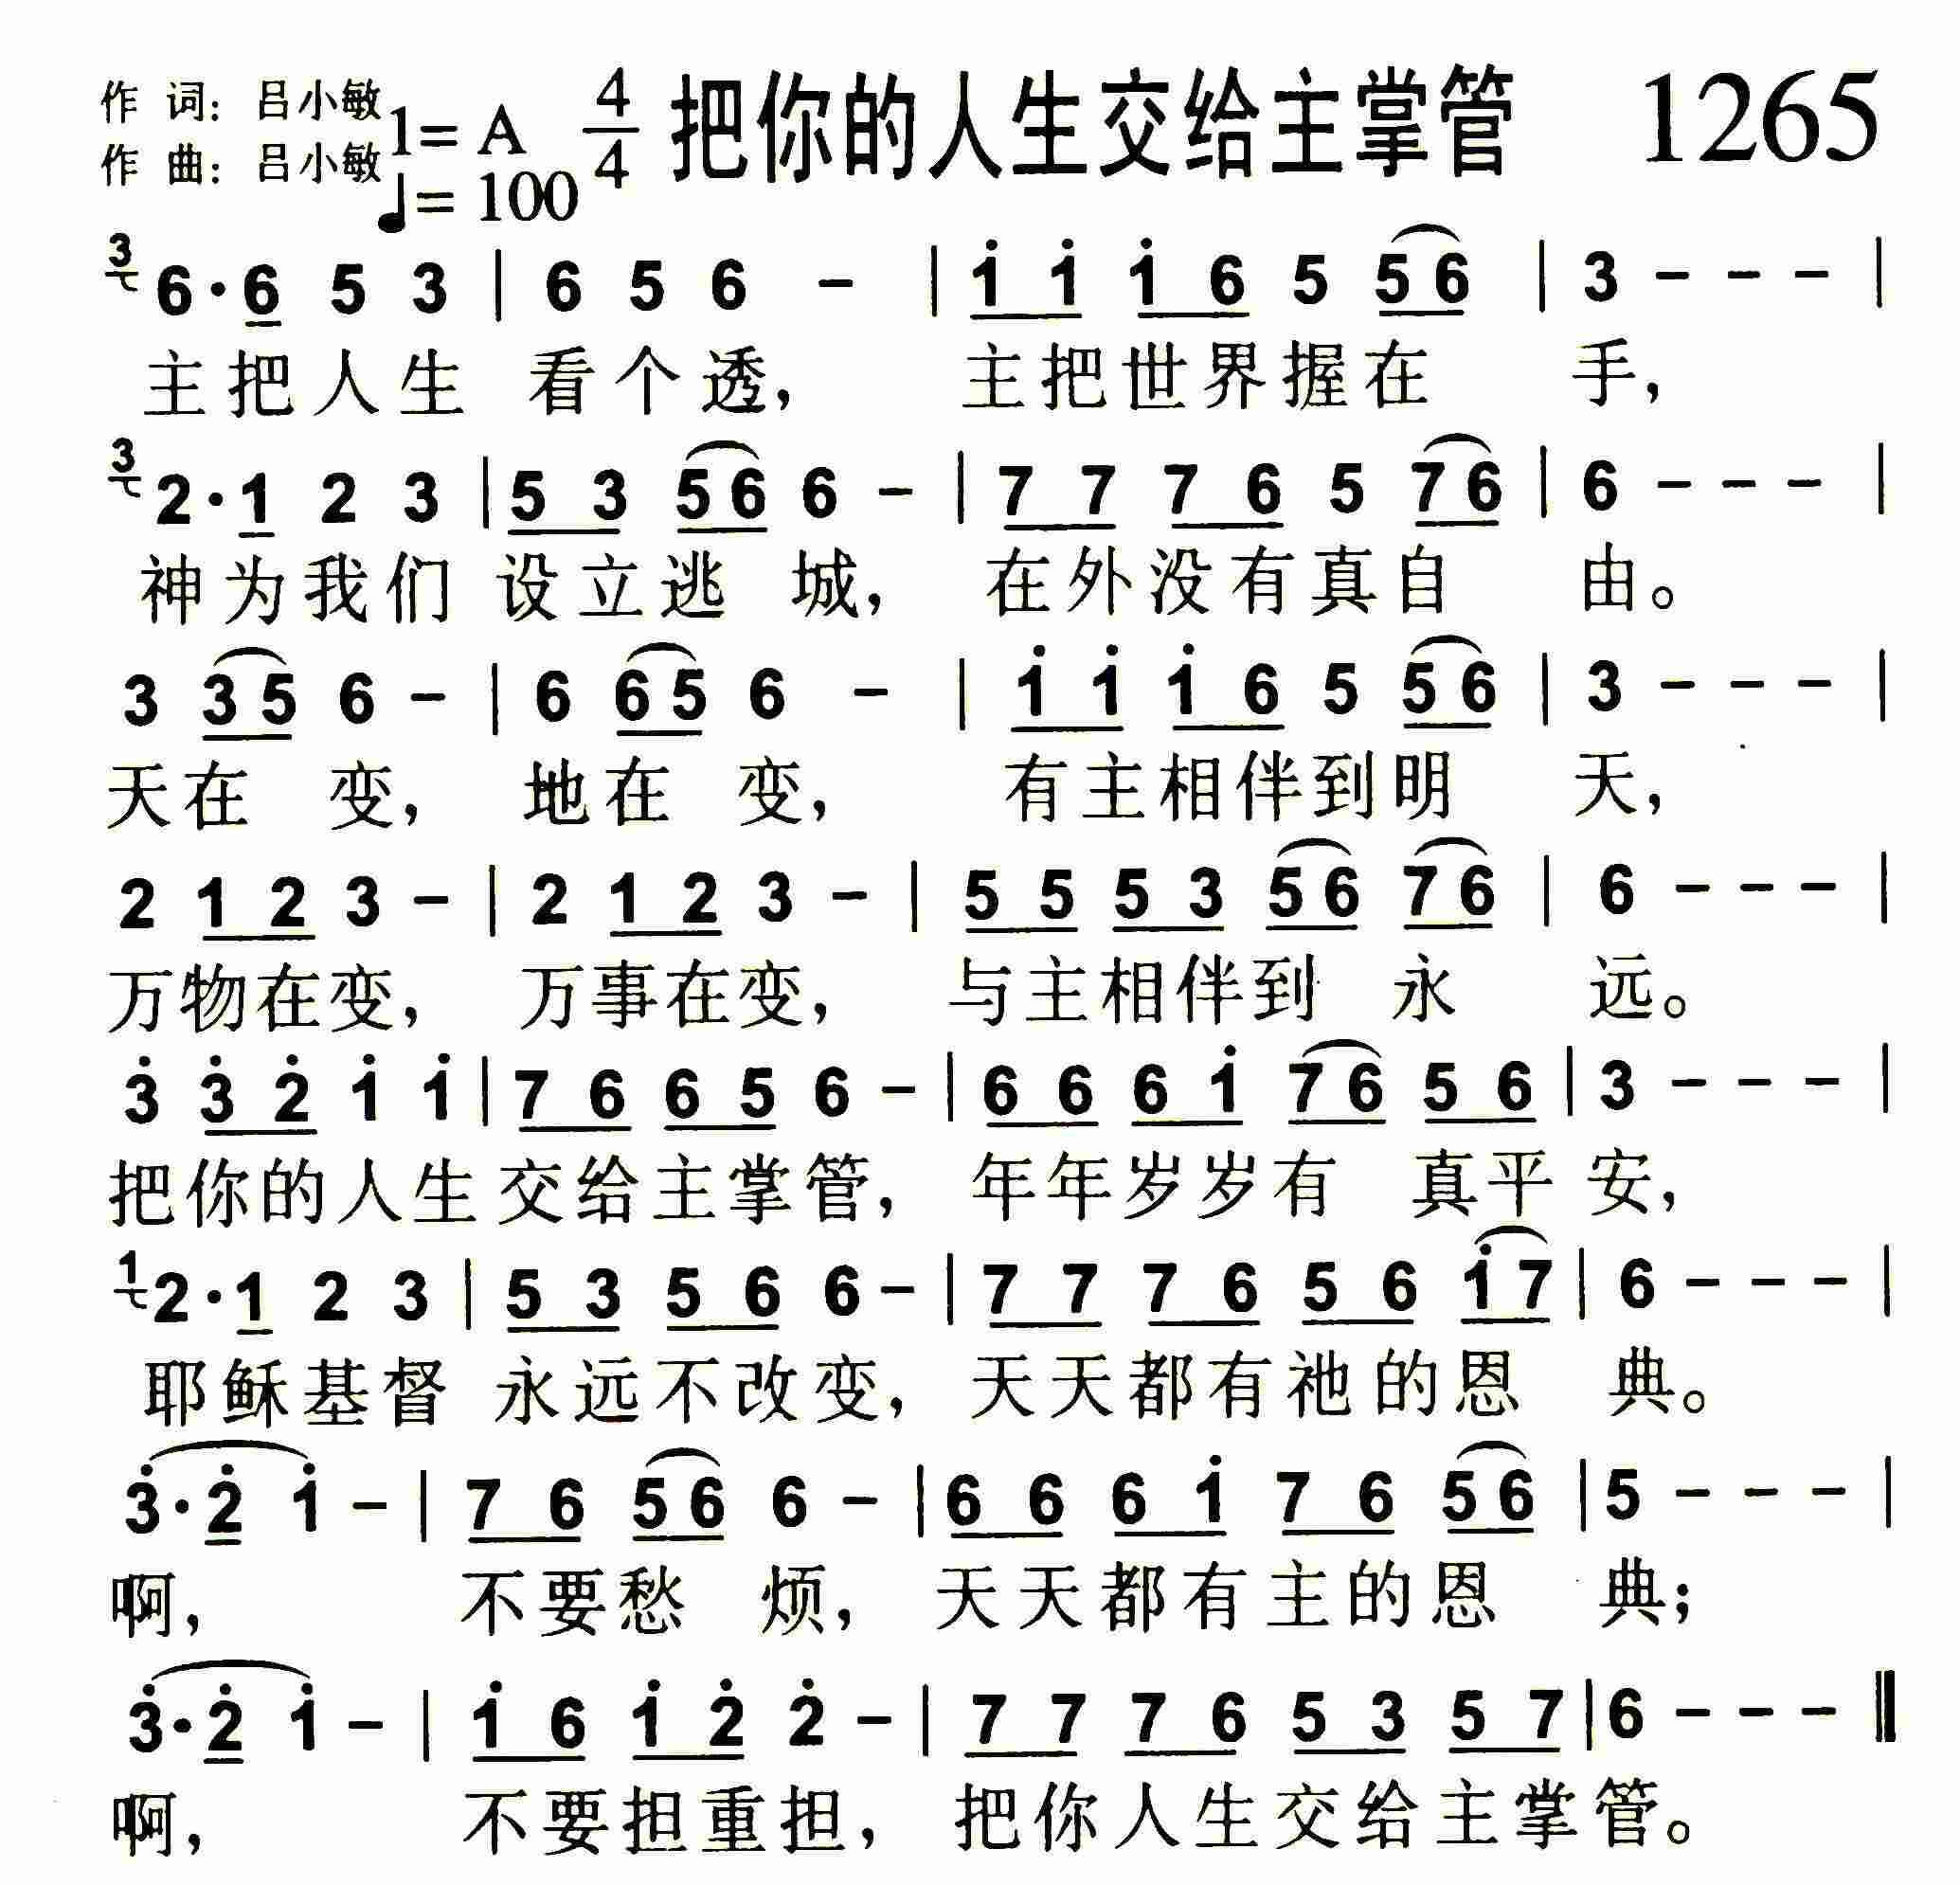 作 词: 吕小敏 1= A 4/4 把你的人生交给主掌管 1265
作 曲: 吕小敏 ♩= 100
3 6·6 5 3 | 6 5 6 - | i i i 6 5 5 6 | 3 - - - |
主把人生 看个透, 主把世界握在 手,
3 2·1 2 3 | 5 3 5 6 6 - | 7 7 7 6 5 7 6 | 6 - - - |
神为我们 设立逃 城, 在外没有真自 由。
3 3 5 6 - | 6 6 5 6 - | i i i 6 5 5 6 | 3 - - - |
天在 变, 地在 变, 有主相伴到明 天,
2 1 2 3 - | 2 1 2 3 - | 5 5 5 3 5 6 7 6 | 6 - - - |
万物在变, 万事在变, 与主相伴到 永 远。
3̇ 3̇ 2̇ i i | 7 6 6 5 6 - | 6 6 6 i 7 6 5 6 | 3 - - - |
把你的人生 交给主掌管, 年年岁岁有 真平 安,
1 2·1 2 3 | 5 3 5 6 6 - | 7 7 7 6 5 6 i 7 | 6 - - - |
耶稣基督 永远不改变, 天天都有祂的恩 典。
3̇·2̇ i - | 7 6 5 6 6 - | 6 6 6 i 7 6 5 6 | 5 - - - |
啊, 不要愁 烦, 天天都有主的恩 典;
3̇·2̇ i - | i 6 i 2̇ 2̇ - | 7 7 7 6 5 3 5 7 | 6 - - - ‖
啊, 不要担重担, 把你人生交给主掌管。